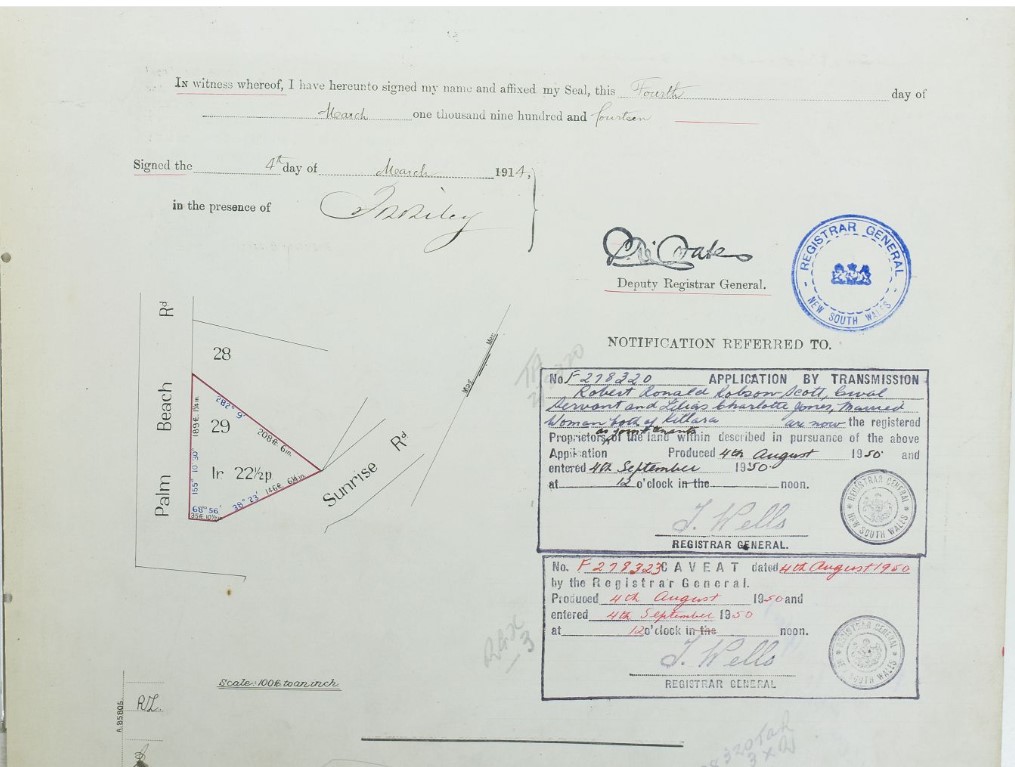 In witness whereof, I have hereunto signed my name and affixed my Seal, this Fourth day of
March one thousand nine hundred and fourteen
Signed the 4th day of March 1914,
in the presence of
Deputy Registrar General.
REGISTRAR GENERAL
NEW SOUTH WALES
NOTIFICATION REFERRED TO.
No. F278320 APPLICATION BY TRANSMISSION
Robert Ronald Robson Scott, Civil
Servant and Lilias Charlotte Jones, Married
Woman both of Killara are now the registered
as joint tenants
Proprietors of the land within described in pursuance of the above
Application Produced 4th August 1950 and
entered 4th September 1950
at 12 o'clock in the noon.
J. Wells
REGISTRAR GENERAL.
REGISTRAR GENERAL
NEW SOUTH WALES
No. F278323 CAVEAT dated 4th August 1950
by the Registrar General.
Produced 4th August 1950 and
entered 4th September 1950
at 12 o'clock in the noon.
J. Wells
REGISTRAR GENERAL
REGISTRAR GENERAL
NEW SOUTH WALES
Palm Beach Rd
28
29
1r 22½p
282° 9'
208ft 6in
155° 10' 30"
68° 56'
38° 23'
Sunrise Rd
Scale: 100ft to an inch